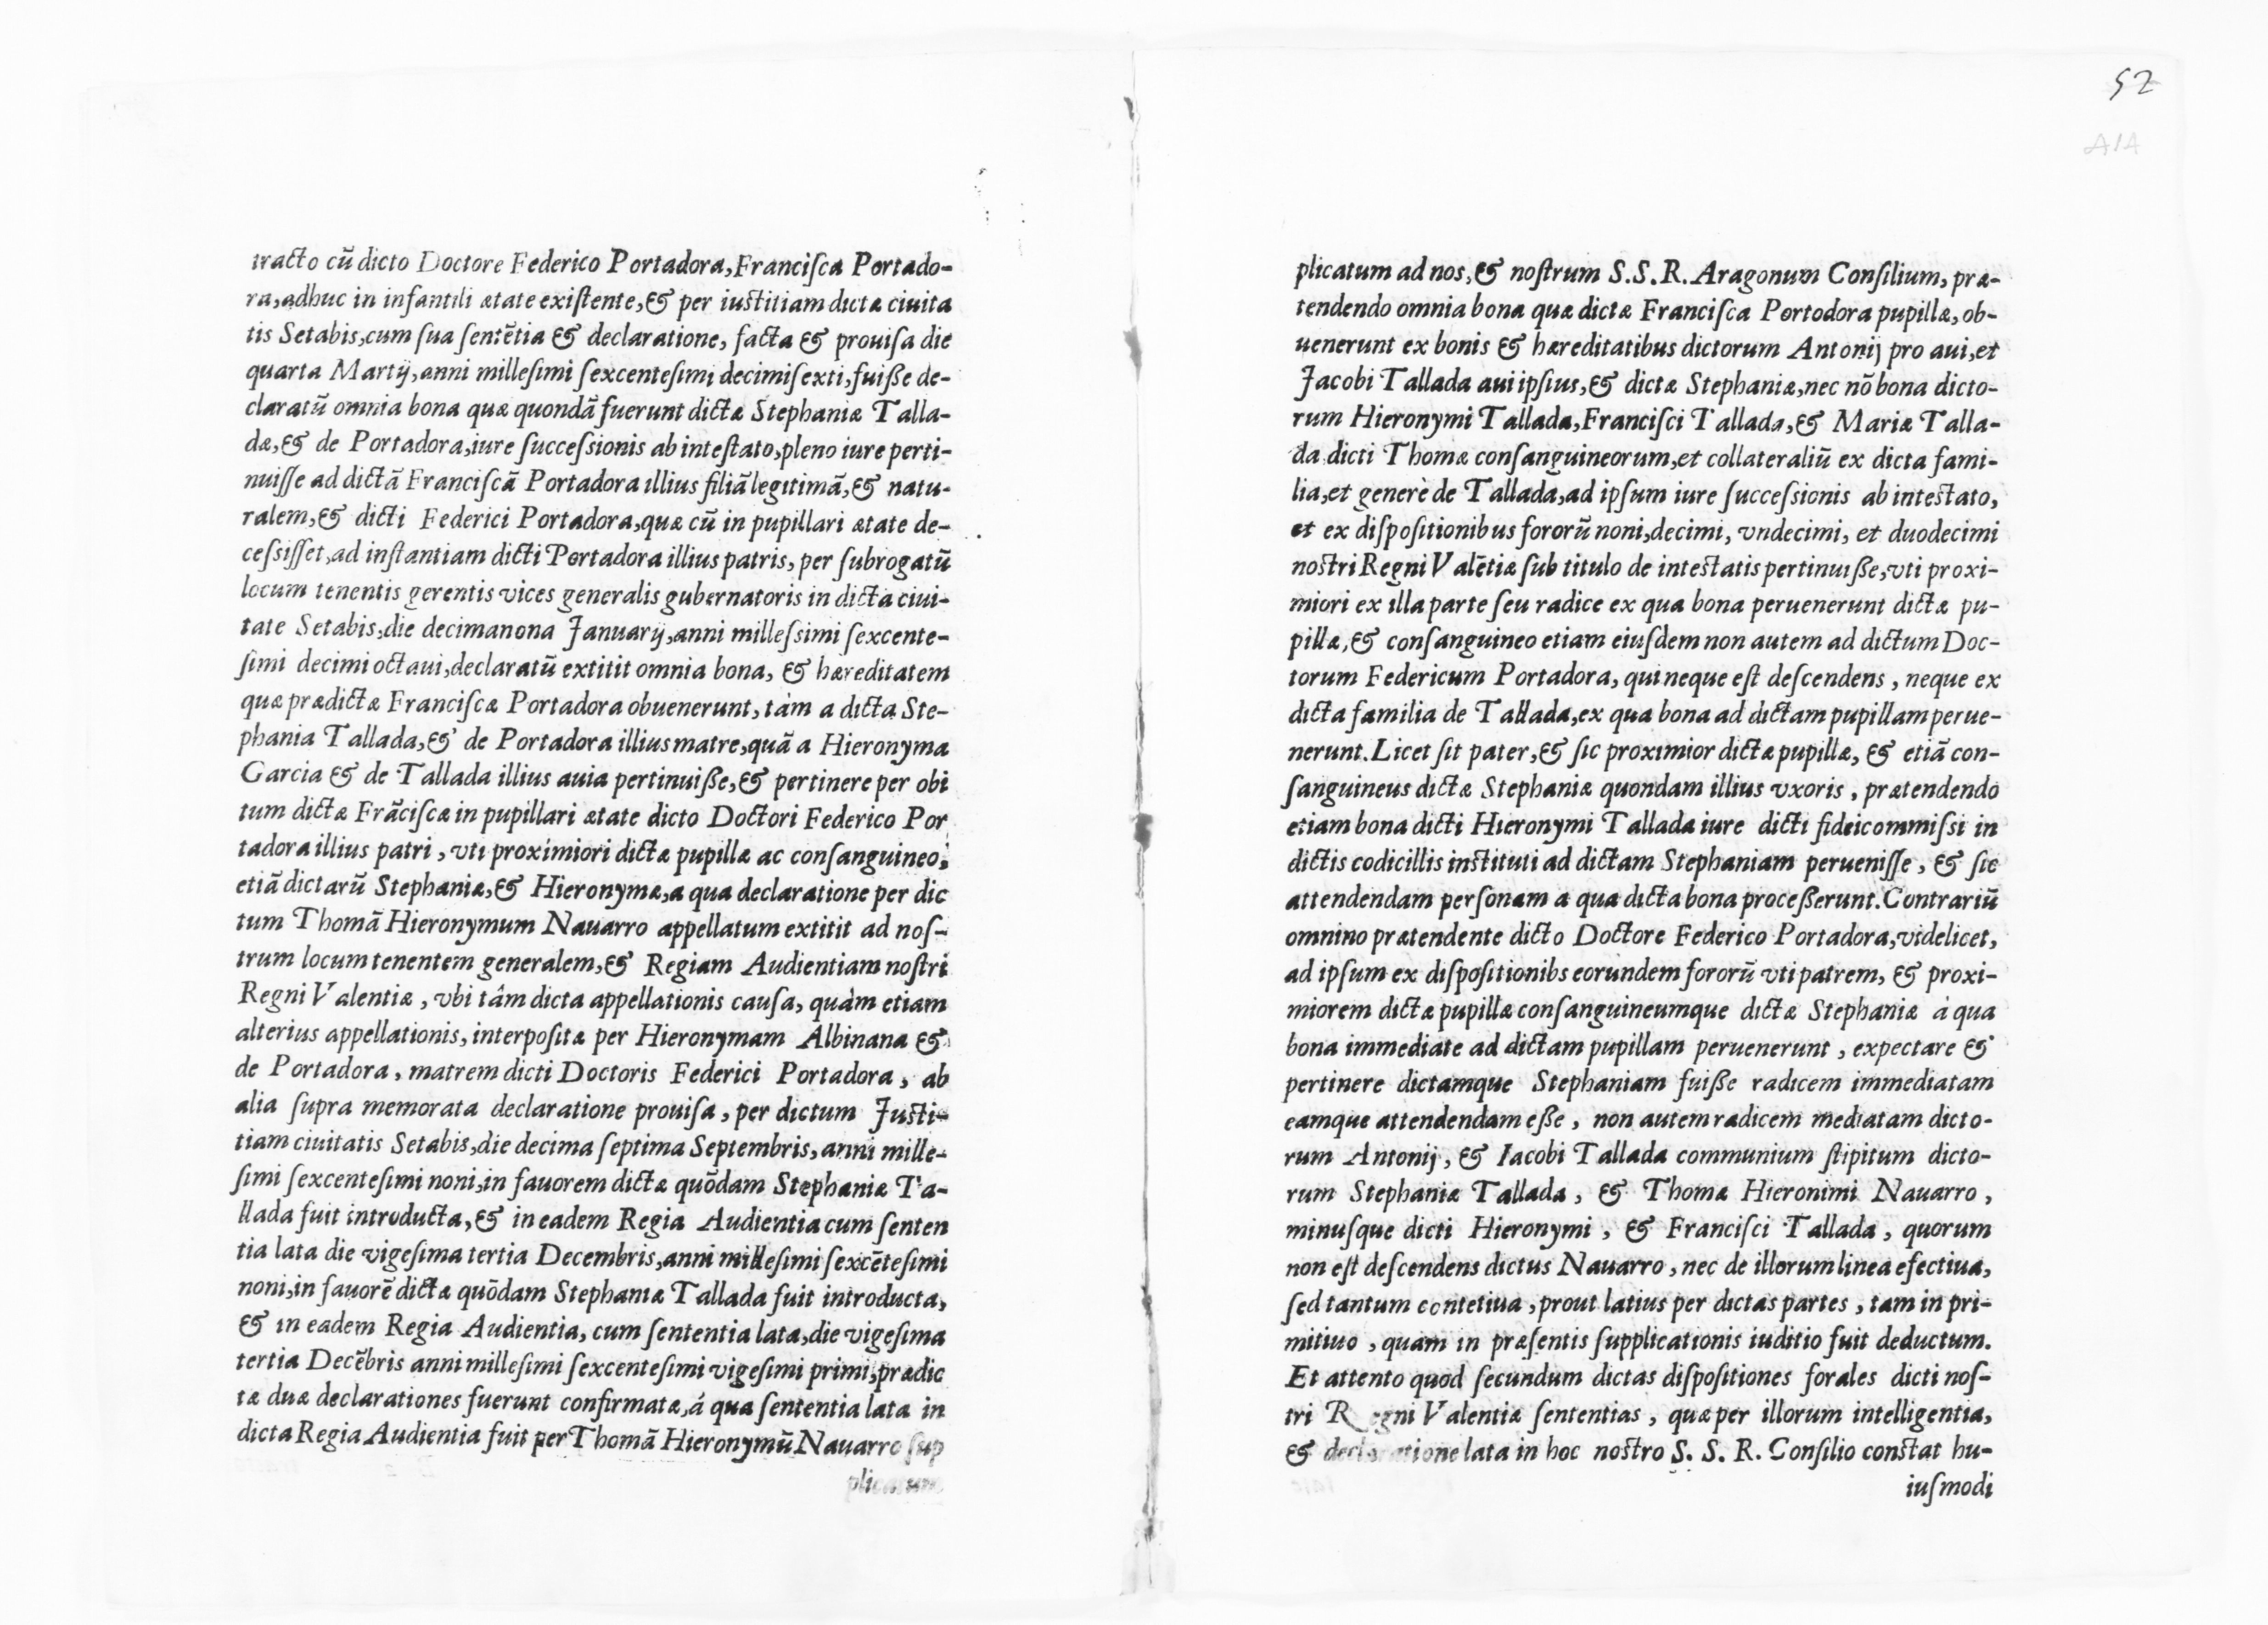 tracto cũ dicto Doctore Federico Portadora, Franciſca Portado-
ra, adhuc in infantili ætate exiſtente, & per iuſtitiam dictæ ciuita
tis Setabis, cum ſua ſentẽtia & declaratione, facta & prouiſa die
quarta Martij, anni milleſimi ſexcenteſimi decimiſexti, fuiſſe de-
claratũ omnia bona quæ quondã fuerunt dictæ Stephaniæ Talla-
dæ, & de Portadora, iure ſucceſsionis ab inteſtato, pleno iure perti-
nuiſſe ad dictã Franciſcã Portadora illius filiã legitimã, & natu-
ralem, & dicti Federici Portadora, quæ cũ in pupillari ætate de-
ceſsiſſet, ad inſtantiam dicti Portadora illius patris, per ſubrogatũ
locum tenentis gerentis vices generalis gubernatoris in dicta ciui-
tate Setabis, die decimanona January, anni milleſsimi ſexcente-
ſimi decimi octaui, declaratũ extitit omnia bona, & hæreditatem
quæ prædictæ Franciſcæ Portadora obuenerunt, tàm a dicta Ste-
phania Tallada, & de Portadora illius matre, quã a Hieronyma
Garcia & de Tallada illius auia pertinuiſſe, & pertinere per obi
tum dictæ Frãciſcæ in pupillari ætate dicto Doctori Federico Por
tadora illius patri, vti proximiori dictæ pupillæ ac conſanguineo,
etiã dictarũ Stephaniæ, & Hieronymæ, a qua declaratione per dic
tum Thomã Hieronymum Nauarro appellatum extitit ad noſ-
trum locum tenentem generalem, & Regiam Audientiam noſtri
Regni Valentiæ, vbi tâm dicta appellationis cauſa, quàm etiam
alterius appellationis, interpoſitæ per Hieronymam Albinana &
de Portadora, matrem dicti Doctoris Federici Portadora, ab
alia ſupra memorata declaratione prouiſa, per dictum Juſti-
tiam ciuitatis Setabis, die decima ſeptima Septembris, anni mille-
ſimi ſexcenteſimi noni, in fauorem dictæ quõdam Stephaniæ Ta-
llada fuit introducta, & in eadem Regia Audientia cum ſenten
tia lata die vigeſima tertia Decembris, anni milleſimi ſexcẽteſimi
noni, in fauorẽ dictæ quõdam Stephaniæ Tallada fuit introducta,
& in eadem Regia Audientia, cum ſententia lata, die vigeſima
tertia Decẽbris anni milleſimi ſexcenteſimi vigeſimi primi, prædic
tæ duæ declarationes fuerunt confirmatæ, á qua ſententia lata in
dicta Regia Audientia fuit per Thomã Hieronymũ Nauarro ſup
plicatum
52
A/A
plicatum ad nos, & noſtrum S.S.R. Aragonum Conſilium, præ-
tendendo omnia bona quæ dictæ Franciſca Portodora pupillæ, ob-
uenerunt ex bonis & hæreditatibus dictorum Antonij pro aui, et
Jacobi Tallada aui ipſius, & dictæ Stephaniæ, nec nõ bona dicto-
rum Hieronymi Tallada, Franciſci Tallada, & Mariæ Talla-
da dicti Thomæ conſanguineorum, et collateraliũ ex dicta fami-
lia, et generè de Tallada, ad ipſum iure ſucceſsionis ab inteſtato,
et ex diſpoſitionibus fororũ noni, decimi, vndecimi, et duodecimi
noſtri Regni Valẽtiæ ſub titulo de inteſtatis pertinuiſſe, vti proxi-
miori ex illa parte ſeu radice ex qua bona peruenerunt dictæ pu-
pillæ, & conſanguineo etiam eiuſdem non autem ad dictum Doc-
torum Federicum Portadora, qui neque eſt deſcendens, neque ex
dicta familia de Tallada, ex qua bona ad dictam pupillam perue-
nerunt. Licet ſit pater, & ſic proximior dictæ pupillæ, & etiã con-
ſanguineus dictæ Stephaniæ quondam illius vxoris, prætendendo
etiam bona dicti Hieronymi Tallada iure dicti fideicommiſsi in
dictis codicillis inſtituti ad dictam Stephaniam perueniſſe, & ſic
attendendam perſonam a qua dicta bona proceſſerunt. Contrariũ
omnino prætendente dicto Doctore Federico Portadora, videlicet,
ad ipſum ex diſpoſitionibs eorundem fororũ vti patrem, & proxi-
miorem dictæ pupillæ conſanguineumque dictæ Stephaniæ à qua
bona immediate ad dictam pupillam peruenerunt, expectare &
pertinere dictamque Stephaniam fuiſſe radicem immediatam
eamque attendendam eſſe, non autem radicem mediatam dicto-
rum Antonij, & Iacobi Tallada communium ſtipitum dicto-
rum Stephaniæ Tallada, & Thomæ Hieronimi Nauarro,
minuſque dicti Hieronymi, & Franciſci Tallada, quorum
non eſt deſcendens dictus Nauarro, nec de illorum linea efectiua,
ſed tantum contetiua, prout latius per dictas partes, tam in pri-
mitiuo, quam in præſentis ſupplicationis iuditio fuit deductum.
Et attento quod ſecundum dictas diſpoſitiones forales dicti noſ-
tri Regni Valentiæ ſententias, quæ per illorum intelligentia,
& declaratione lata in hoc noſtro S. S. R. Conſilio conſtat hu-
iuſmodi